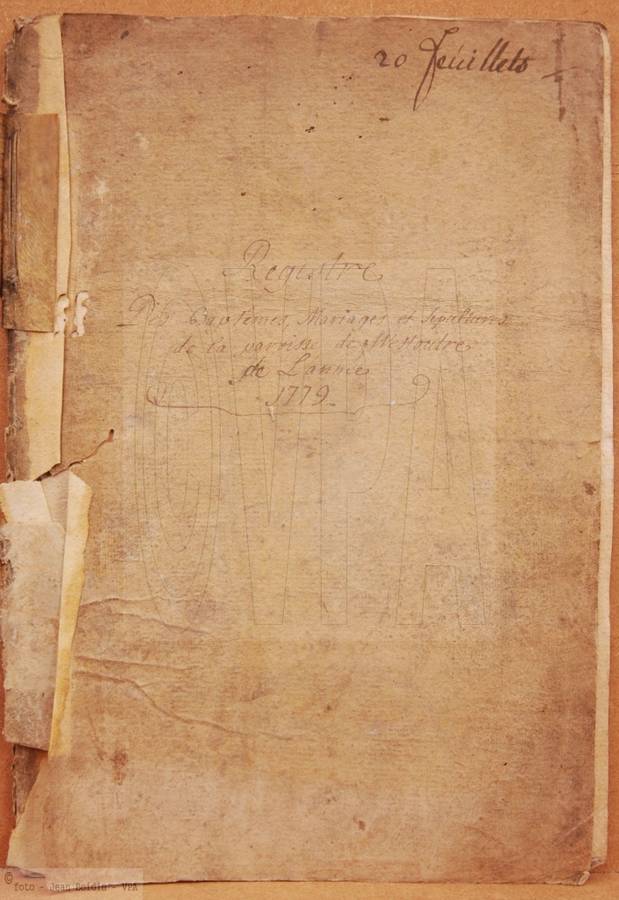 20 feuillets
Registre
Des Baptêmes, Mariages et Sepultures
de la parrisse de
de L'année
1779
© VPA
© foto - Jean Boidin - VPA